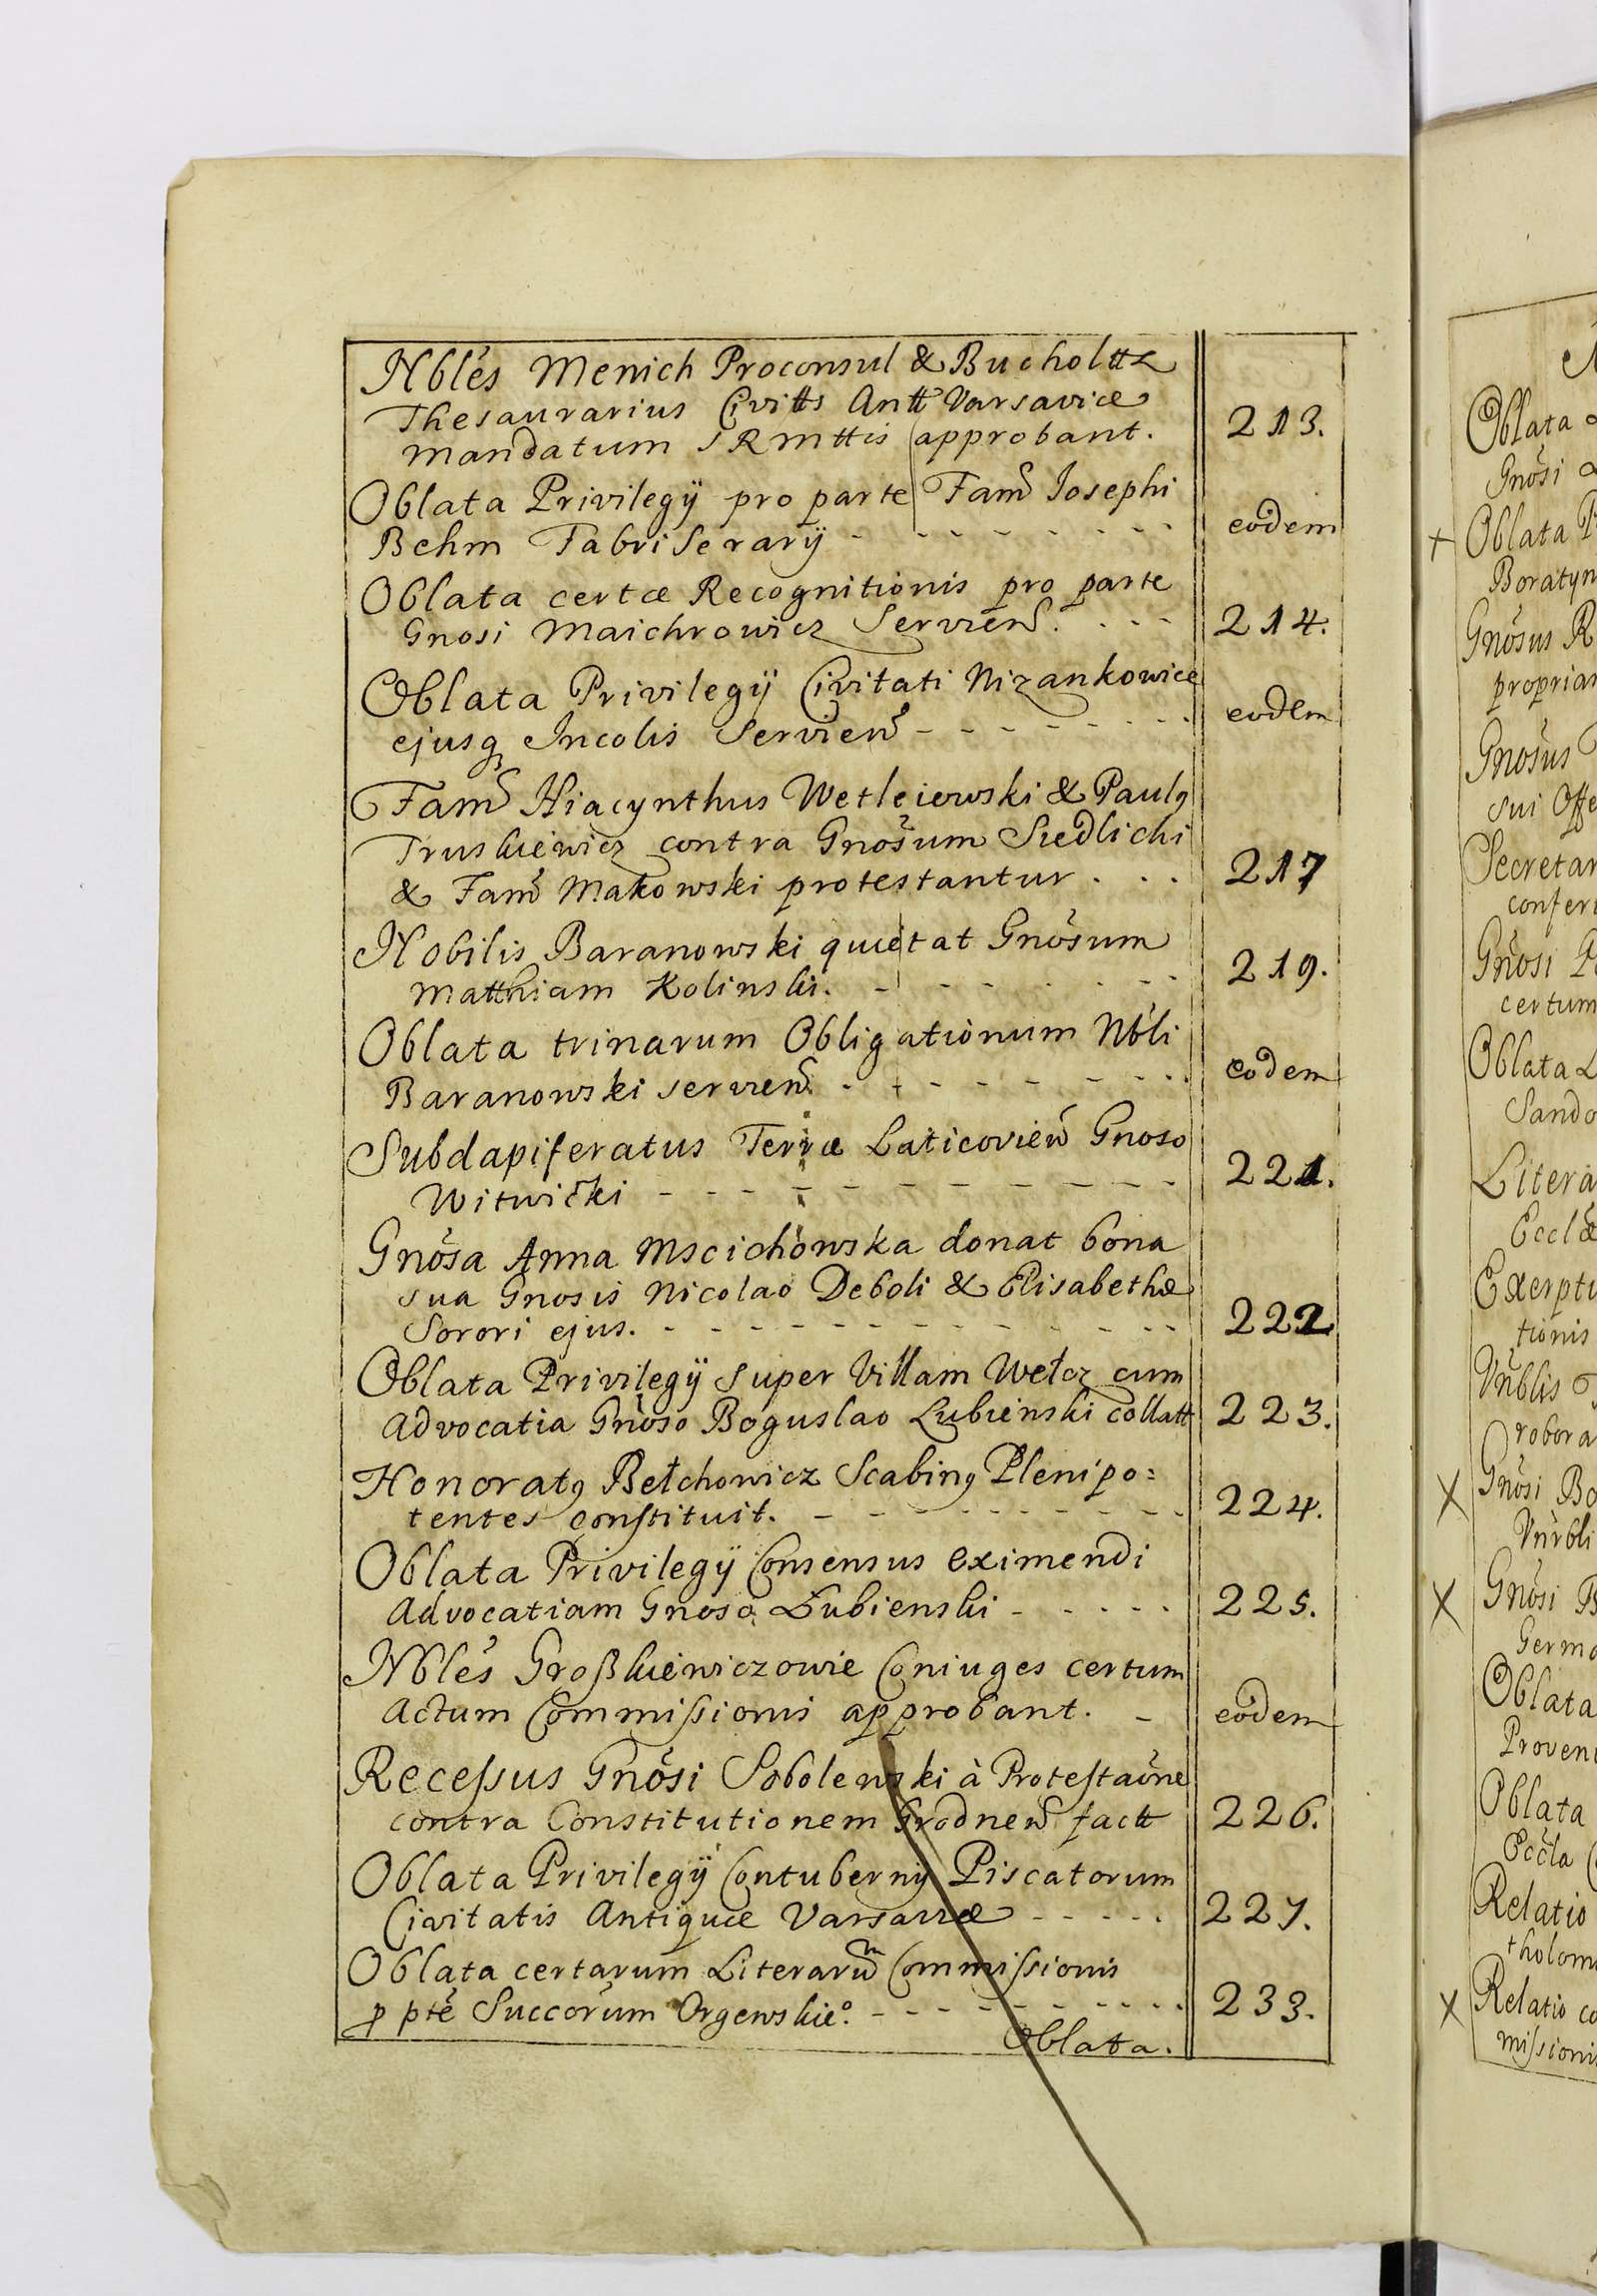 Nbles Menich Proconsul & Bucholttz
Thesaurarius Civitts Antt Varsaviæ
mandatum S R Mttis approbant. 213.
Oblata Privilegÿ pro parte Fam̃ Iosephi
Behm Fabri Serarÿ - - - - - - - eodem
Oblata certæ Recognitionis pro parte
Gnosi Maichrowicz Servien̄. - - - 214.
Oblata Privilegÿ Civitati Nizankowice
ejusq Incolis Servien̄ - - - - - - eodem
Fam̃ Hiacynthus Wetleiewski & Paulq
Truskiewicz contra Gnosum Siedlicki
& Fam̃ Makowski protestantur . . . 217
Nobilis Baranowski quietat Gnosum
Matthiam Kolinski. - - - - - - 219.
Oblata trinarum Obligationum Nbli
Baranowski servien̄. - - - - - - - eodem
Subdapiferatus Terræ Laticovien̄ Gnoso
Witwicki - - - - - - - - - - - 221.
Gnosa Anna Mscichowska donat bona
sua Gnosis Nicolao Deboli & Elisabethæ
Sorori ejus. - - - - - - - - - - - 222
Oblata Privilegÿ super Villam Wełcz cum
Advocatia Gnoso Boguslao Lubienski collatt 223.
Honoratq Bełchowicz Scabinq Plenipo:
tentes constituit. - - - - - - - - - 224.
Oblata Privilegÿ Consensus eximendi
Advocatiam Gnoso Łubienski - - - - - 225.
Nbles Großkiewiczowie Coniuges certum
Actum Commissionis approbant. - eodem
Recessus Gnosi Sobolewski à Protestaõne
contra Constitutionem Grodnen̄ factt 226.
Oblata Privilegÿ Contubernÿ Piscatorum
Civitatis Antiquæ Varsaviæ - - - - - 227.
Oblata certarum Literarum Commissionis
p pte Succorum Orgewskie°. - - - - - - - - 233.
Oblata.
Oblata
Gnosi
+ Oblata
Boratyn
Gnosus R
proprian
Gnosus
sui Offe
Secretar
confer
Gnosi
certum
Oblata
Sando
Litera
Ecclæ
Exerptu
tionis
Vnblis
robora
X Gnosi Bo
Vnrbli
X Gnosi B
Germa
Oblata
Proven
Oblata
Eccla
Relatio
tholom
X Relatio co
missionis